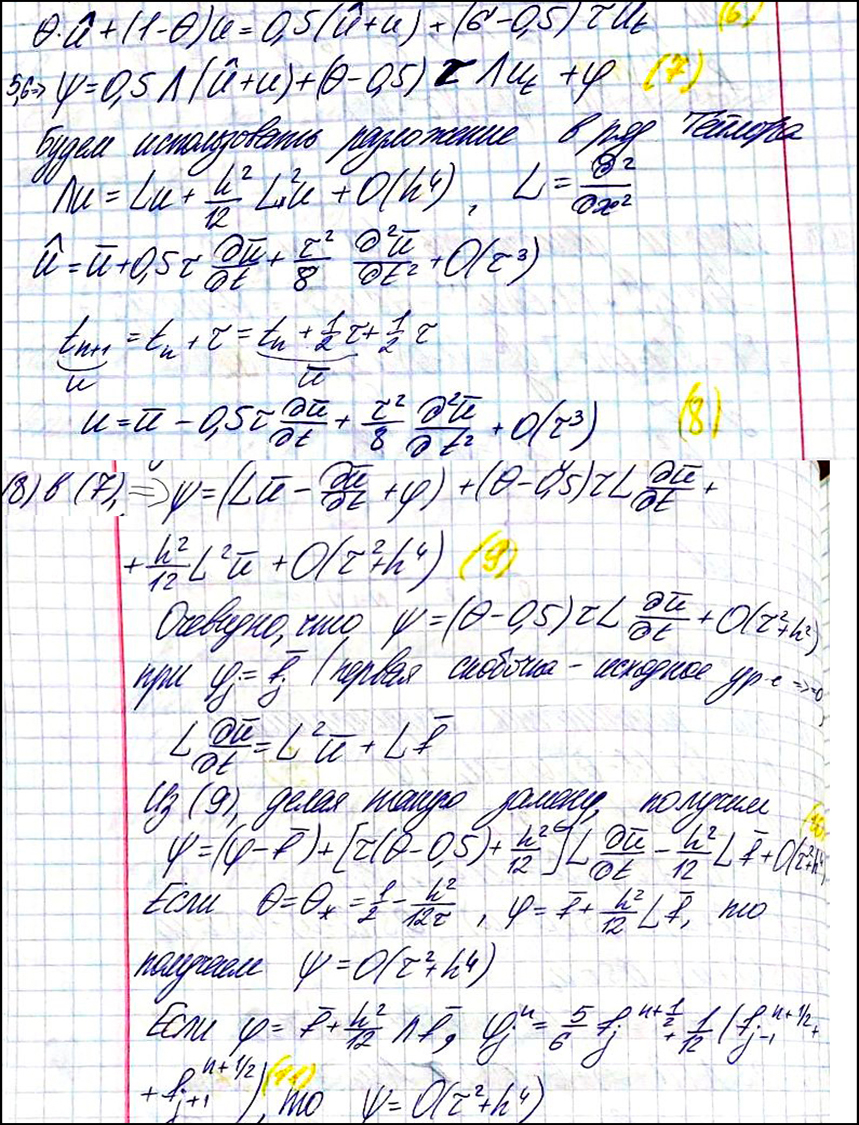 θ·û+(1-θ)u=0,5(û+u)+(σ-0,5)τu_t (6)
5,6=> ψ=0,5Λ(û+u)+(θ-0,5)τΛu_t+φ (7)
Будем использовать разложение в ряд Тейлора
Λu=Lu+h²/12 L²u+O(h⁴), L=∂²/∂x²
û=ū+0,5τ ∂ū/∂t+τ²/8 ∂²ū/∂t²+O(τ³)
t_{n+1}=t_n+τ=t_n+1/2τ+1/2τ
u ū
u=ū-0,5τ ∂ū/∂t+τ²/8 ∂²ū/∂t²+O(τ³) (8)
(8) в (7), => ψ=(Lū-∂ū/∂t+φ)+(θ-0,5)τL ∂ū/∂t+
+h²/12 L²ū+O(τ²+h⁴) (9)
Очевидно, что ψ=(θ-0,5)τL ∂ū/∂t+O(τ²+h²)
при φ_j=f̄_j (первая скобочка - исходное ур-е =>=0
L ∂ū/∂t=L²ū+Lf̄
Из (9), делая такую замену, получим
ψ=(φ-f̄)+[τ(θ-0,5)+h²/12]L ∂ū/∂t-h²/12 Lf̄+O(τ²+h⁴) (10)
Если θ=θ_*=1/2-h²/12τ, φ=f̄+h²/12 Lf̄, то
получаем ψ=O(τ²+h⁴)
Если φ=f̄+h²/12 Λf̄, φ_j^n=5/6 f_j^{n+1/2}+1/12(f_{j-1}^{n+1/2}+
+f_{j+1}^{n+1/2}) (11), то ψ=O(τ²+h⁴)